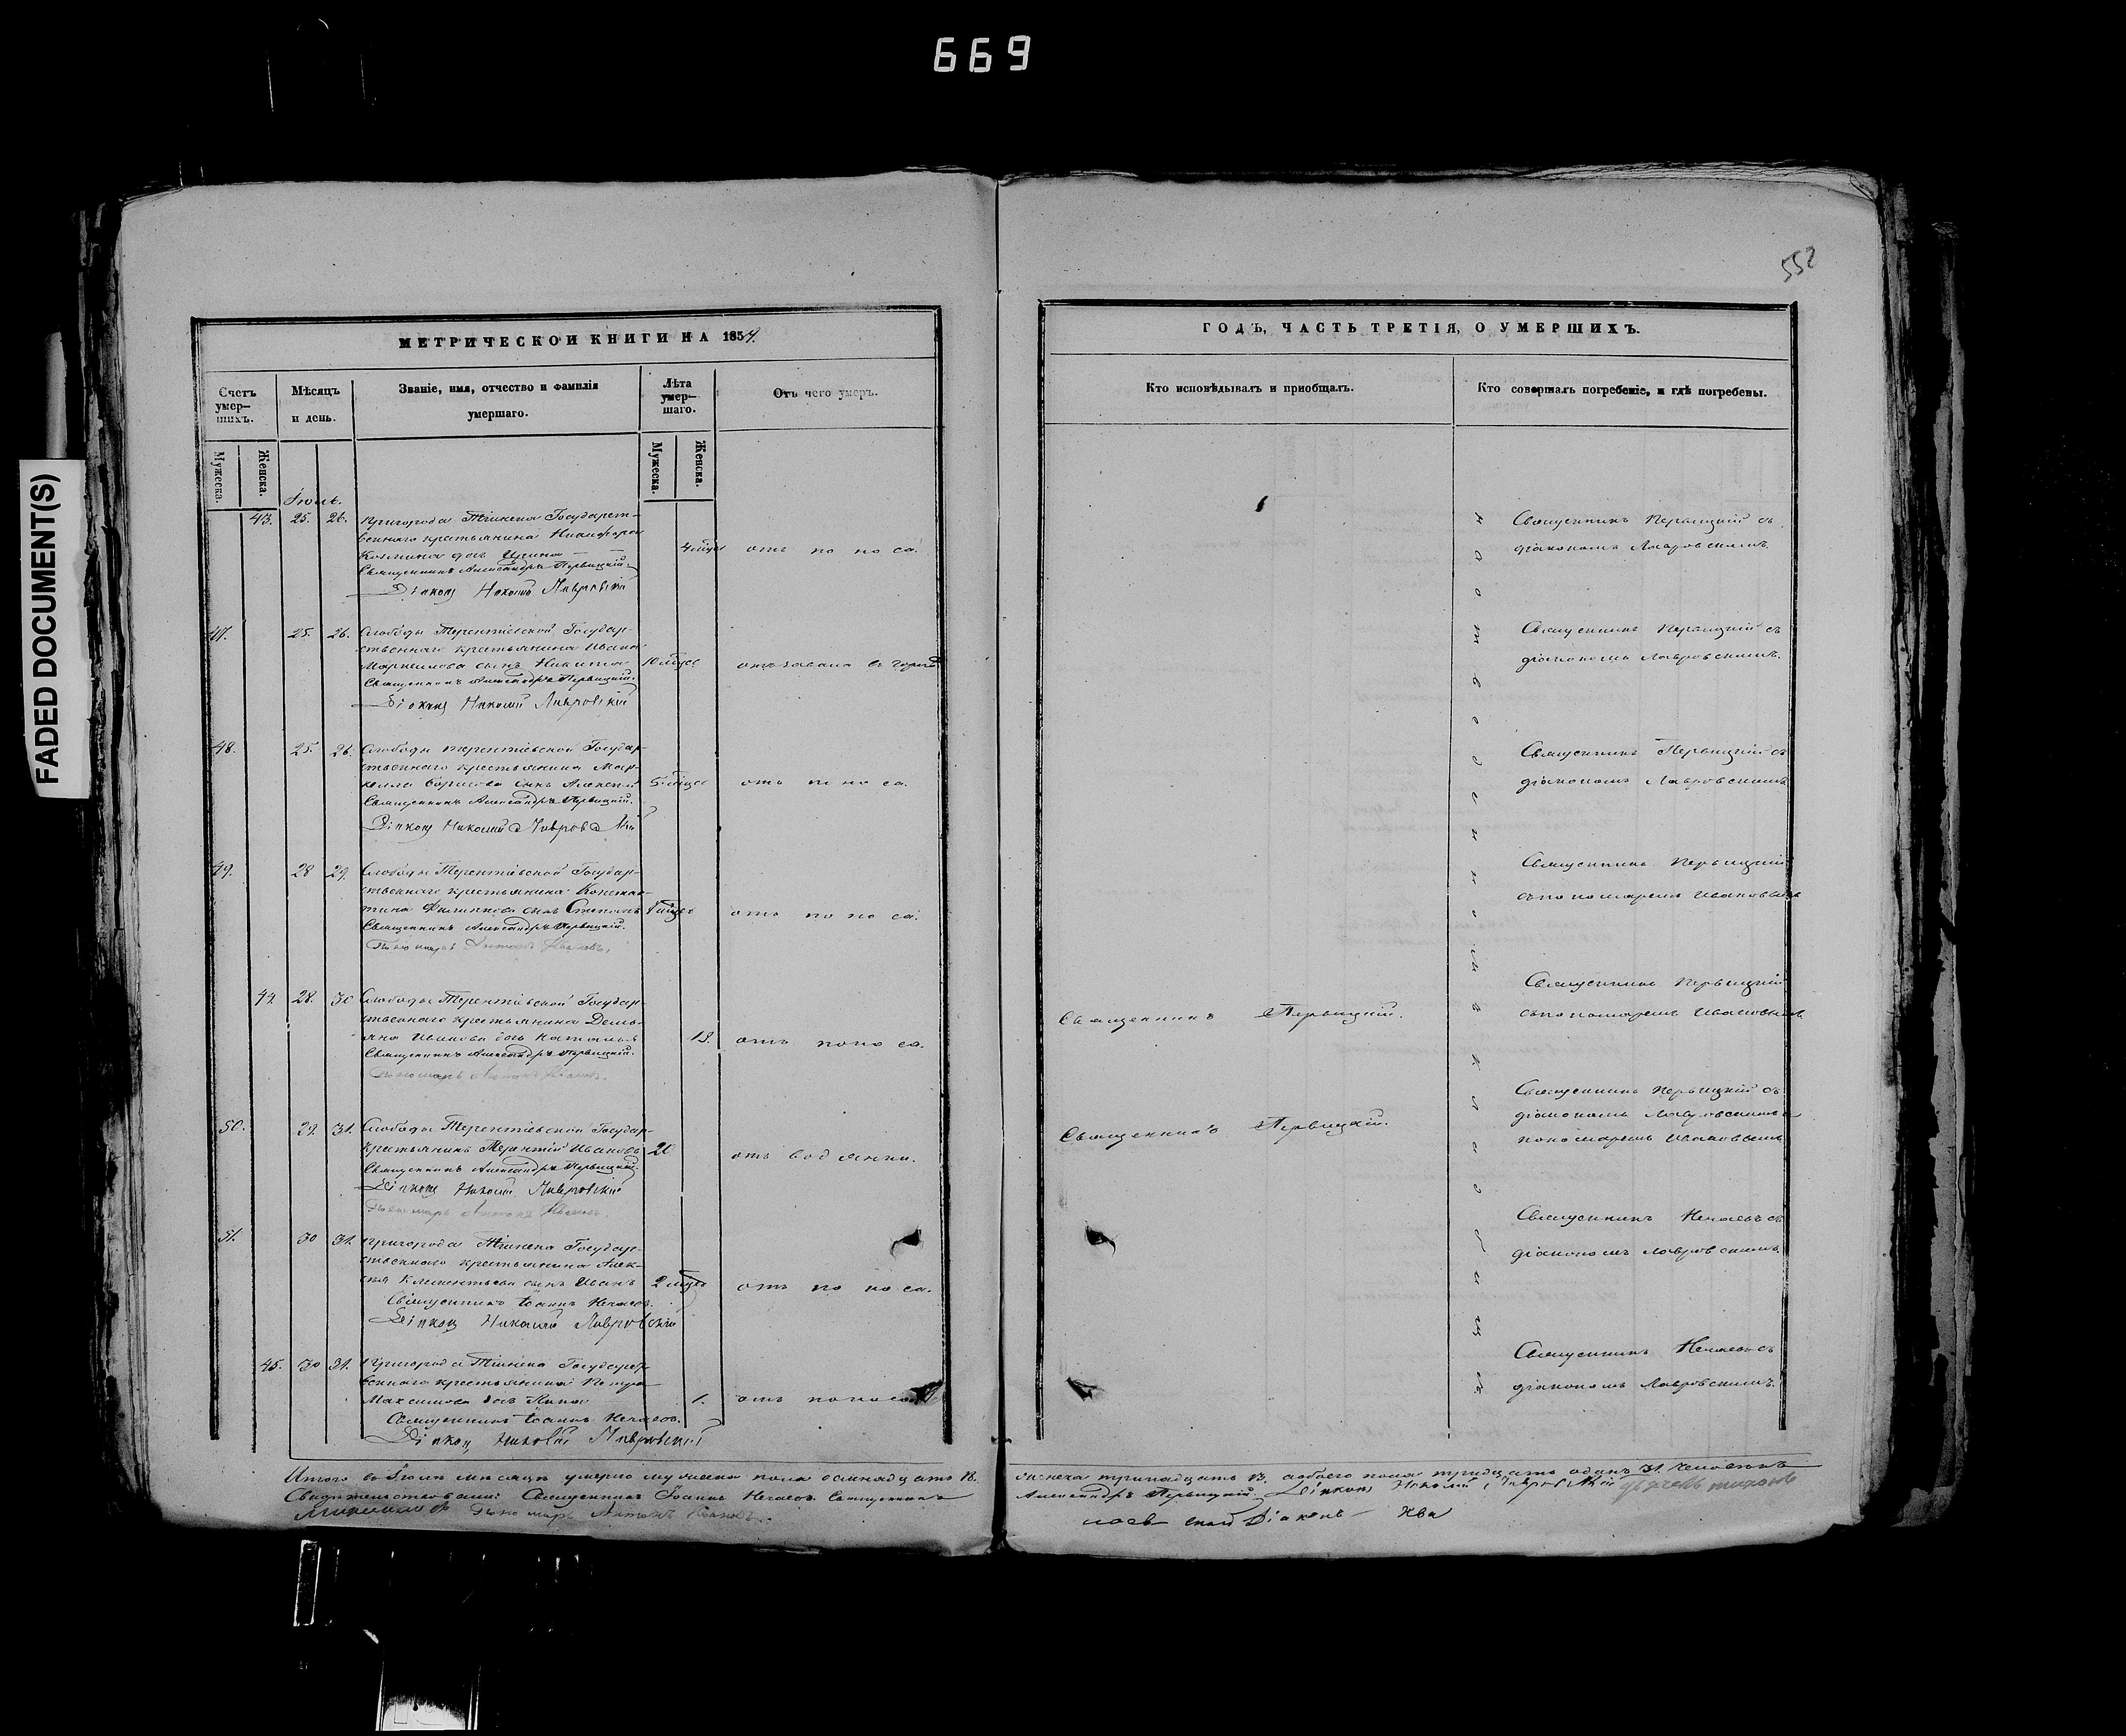 669
FADED DOCUMENT(S)
552
МЕТРИЧЕСКОЙ КНИГИ НА 1854.
Счетъ умер- шихъ.
Мѣсяцъ и день.
Званіе, имя, отчество и фамилія умершаго.
Лѣта умер- шаго.
Отъ чего умеръ.
Мужеска.
Женска.
Мужеска.
Женска.
Іюль.
43. 25. 26. Пригорода Тіинска Государст-
веннаго крестьянина Никифора
Козмина дочь Ирина 4 мѣсяц отъ поноса.
Священникъ Александръ Первицкій.
Діаконъ Николай Лавровскій
47. 25. 26. Слободы Терентіевской Государ-
ственнаго крестьянина Ивана
сынъ Никита 10 мѣсяц
Священникъ Александръ Первицкій.
Діаконъ Николай Лавровскій
48. 25. 26. Слободы Терентіевской Государ-
ственнаго крестьянина Мар-
келла Борисова сынъ Алексей 5 мѣсяц отъ поноса.
Священникъ Александръ Первицкій.
Діаконъ Николай Лавровскій
49. 28 29. Слободы Терентіевской Государ-
ственнаго крестьянина Констан-
тина сынъ Степанъ отъ поноса.
Священникъ Александръ Первицкій.
Пономарь Антонъ Ивановъ.
44. 28. 30 Слободы Терентіевской Государ-
ственнаго крестьянина Демь-
яна Иванова дочь Наталья 13. отъ поноса.
Священникъ Александръ Первицкій.
Пономарь Антонъ Ивановъ.
50. 29. 31. Слободы Терентіевской Государ-
крестьянинъ Терентій Ивановъ 20 отъ водянки.
Священникъ Александръ Первицкій
Діаконъ Николай Лавровскій
Пономарь Антонъ Ивановъ.
51. 30 31. Пригорода Тіинска Государ-
ственнаго крестьянина Алек-
сѣя Клементьева сынъ Иванъ 2 мѣсяц отъ поноса.
Священникъ Іоаннъ Нечаевъ.
Діаконъ Николай Лавровскій
45. 30 31. Пригорода Тіинска Государст-
веннаго крестьянина Петра
Максимова дочь Анна 1. отъ поноса
Священникъ Іоаннъ Нечаевъ.
Діаконъ Николай Лавровскій
Итого въ Іюлѣ мѣсяцѣ умерло мужеска пола осмнадцать 18.
Свидѣтельствовали: Священникъ Іоаннъ Нечаевъ. Священникъ
Пономарь Антонъ Ивановъ.
ГОДЪ, ЧАСТЬ ТРЕТІЯ, О УМЕРШИХЪ.
Кто исповѣдывалъ и пріобщалъ.
Кто совершалъ погребеніе, и гдѣ погребены.
Священникъ Первицкій съ
діакономъ Лавровскимъ.
Священникъ Первицкій съ
діакономъ Лавровскимъ.
Священникъ Первицкій съ
діакономъ Лавровскимъ
Священникъ Первицкій
съ пономаремъ Ивановымъ
Священникъ Первицкій.
Священникъ Первицкій
съ пономаремъ Ивановымъ
Священникъ Первицкій.
Священникъ Первицкій съ
діакономъ Лавровскимъ и
пономаремъ Ивановымъ
Священникъ Нечаевъ съ
діакономъ Лавровскимъ.
Священникъ Нечаевъ съ
діакономъ Лавровскимъ.
женска тринадцать 13. а обоего пола тридцать одинъ 31. человѣкъ
Александръ Первицкій. Діаконъ Николай Лавровскій
Діаконъ